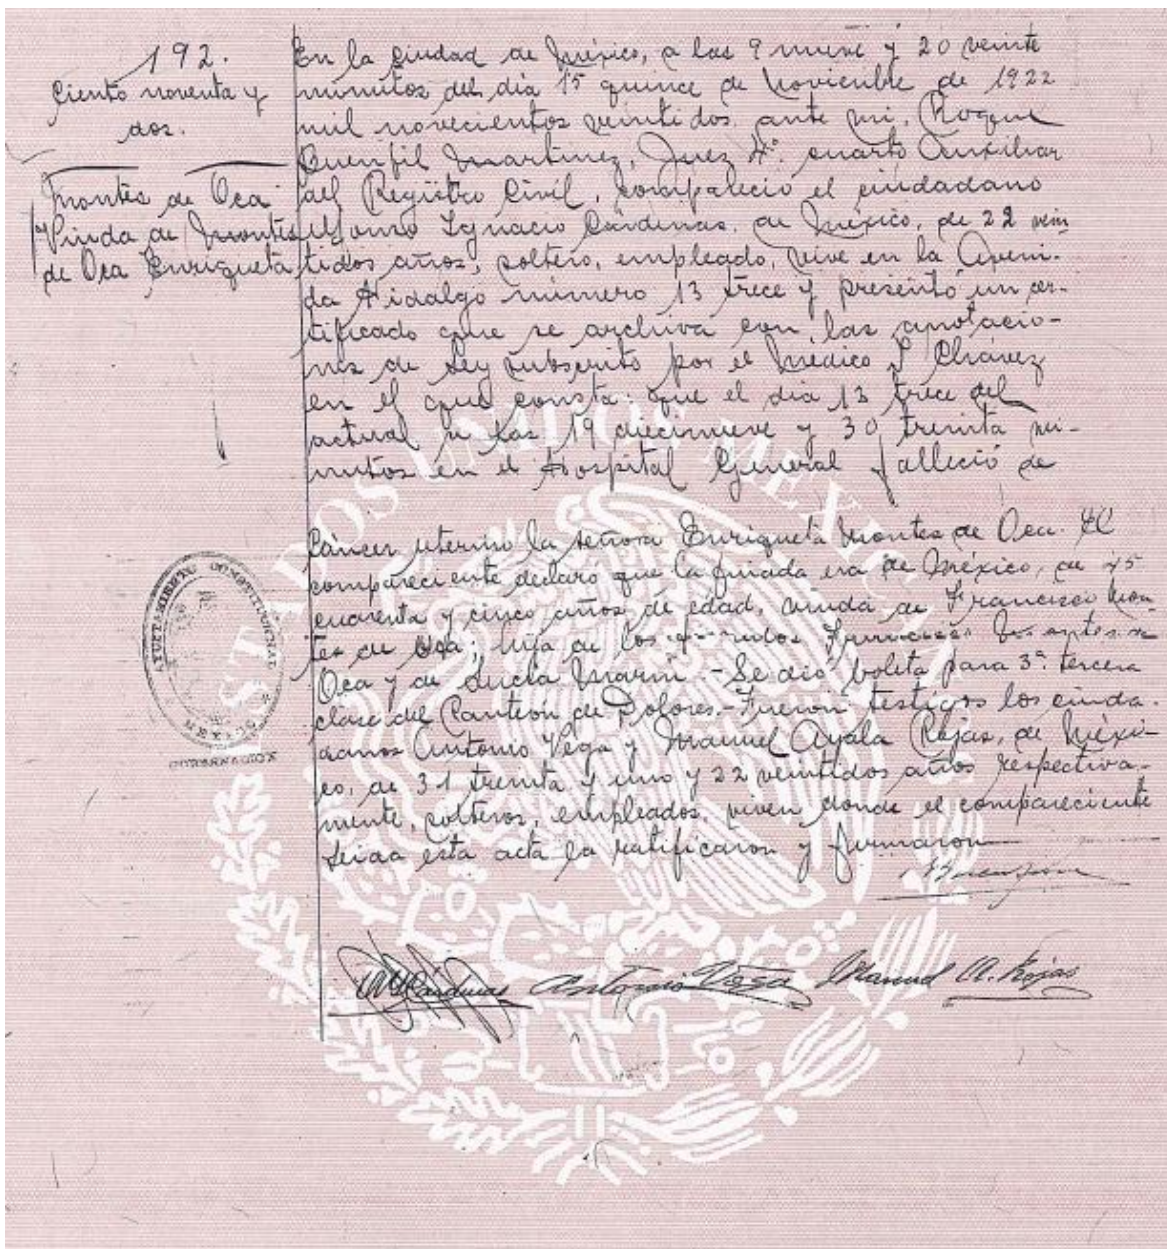 192.
Ciento noventa y
dos.
Montes de Oca
Viuda de Montes
de Oca Enriqueta
En la Ciudad de México, a las 9 nueve y 20 veinte
minutos del dia 15 quince de Noviembre de 1922
mil novecientos veintidos, ante mi, Roque
Martinez, Juez 4º. cuarto Auxiliar
del Registro Civil, compareció el ciudadano
Ignacio Cárdenas, de México, de 22 vein
tidos años, soltero, empleado, vive en la Aveni-
da Hidalgo número 13 trece y presentó un cer-
tificado que se archiva con las anotacio-
nes de Ley subscrito por el Médico I Chávez
en el que consta: que el dia 13 trece del
actual a las 19 diecinueve y 30 treinta mi-
nutos en el Hospital General falleció de
Cáncer uterino la señora Enriqueta Montes de Oca. El
compareciente declaró que la finada era de México, de 45
cuarenta y cinco años de edad, viuda de Francisco Mon
tes de Oca; hija de los finados Montes de
Oca y de Lucia Marin.- Se dió boleta para 3ª. tercera
clase del Panteón de Dolores.- Fueron testigos los ciuda-
danos Antonio Vega y Manuel Ayala Rojas, de Méxi-
co, de 31 treinta y uno y 22 veintidos años respectiva-
mente, solteros, empleados, viven donde el compareciente
Leida esta acta la ratificaron y firmaron
Cárdenas Antonio Vega Manuel A. Rojas
AYUNTAMIENTO CONSTITUCIONAL
MEXICO
ESTADOS UNIDOS MEXICANOS